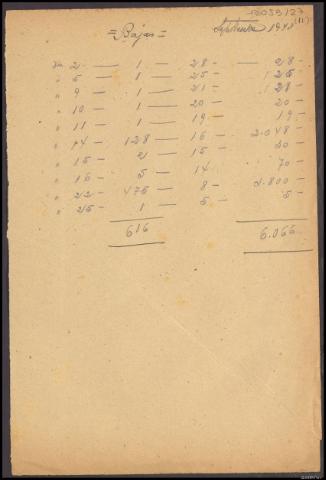 12039/27
(11)
=Bajas= Septiembre 1940
Dia 2 — 1 — 28 — 28 —
" 5 — 1 — 25 — 25 —
" 9 — 1 — 21 — 28 —
" 10 — 1 — 20 — 20 —
" 11 — 1 — 19 — 19 —
" 14 — 128 — 16 — 2.048 —
" 15 — 2 — 15 — 30 —
" 16 — 5 — 14 70 —
" 22 — 475 — 8 — 3.800 —
" 25 — 1 — 5 — 5 —
616 6.066